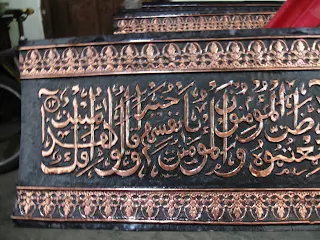 سمعتموه ظن المؤمنون والمؤمنت بأنفسهم خيرا وقالوا هذا إفك مبين